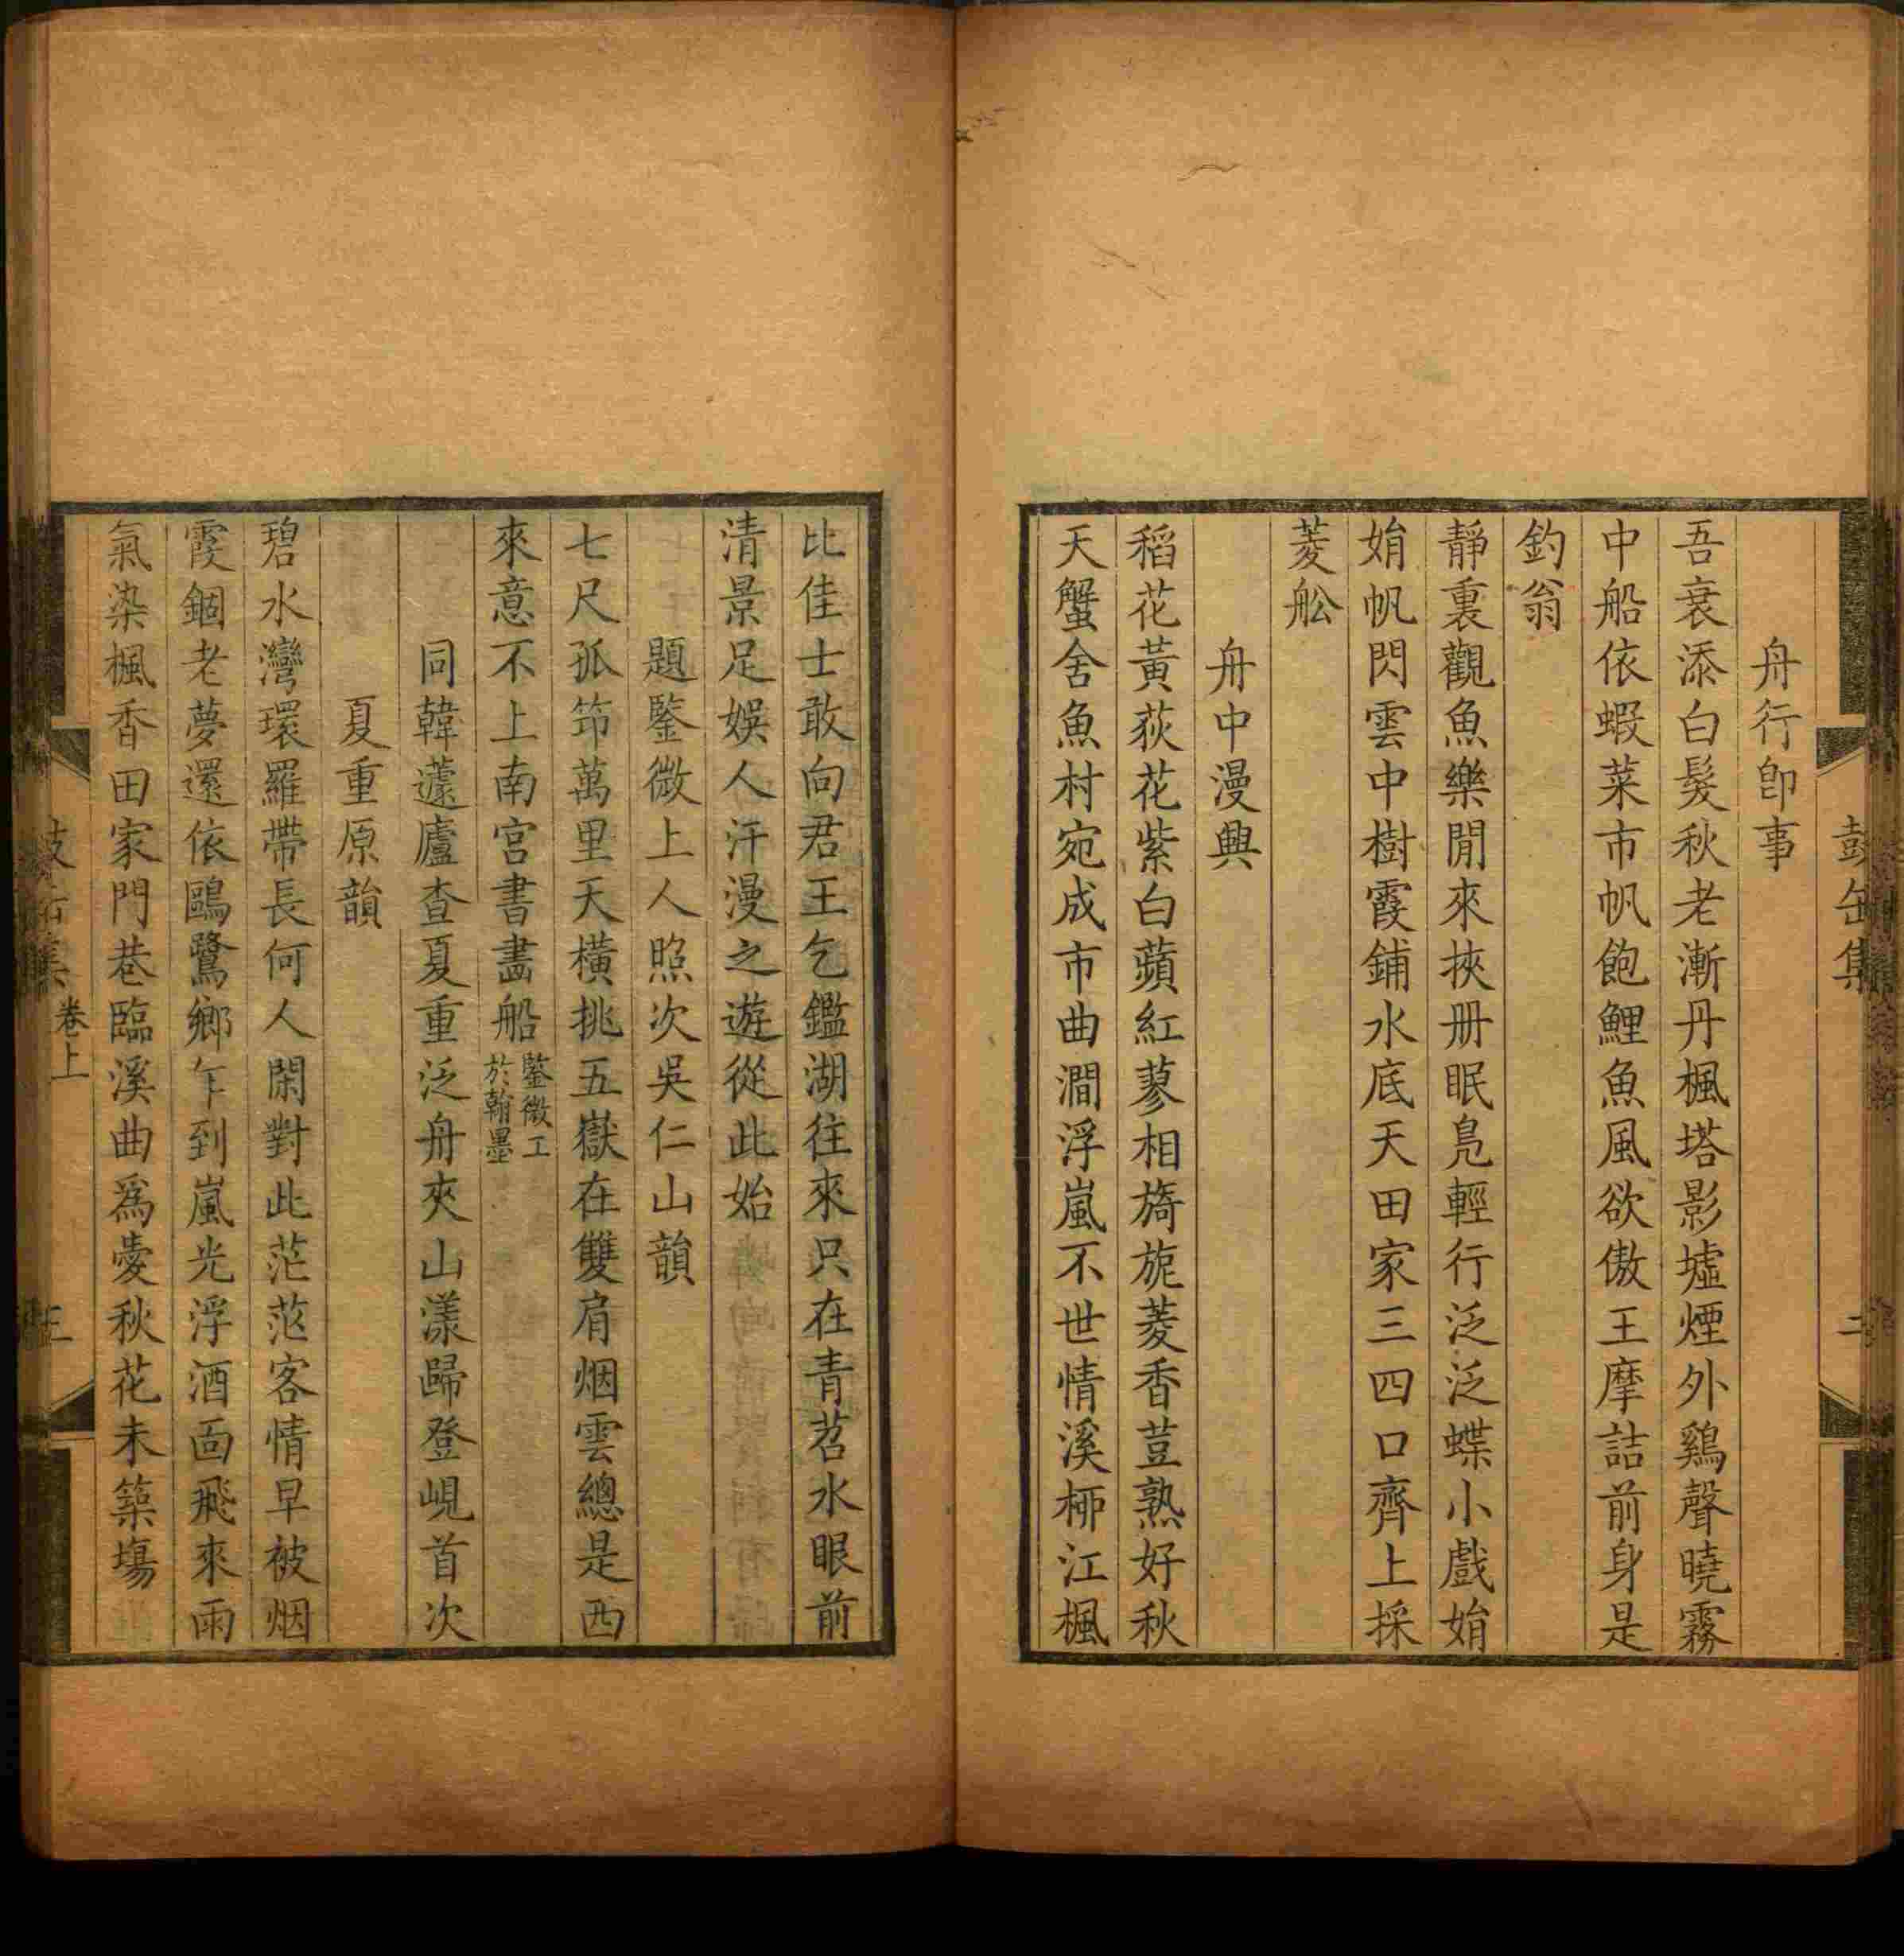 舟行即事
吾衰添白髮秋老漸丹楓塔影墟煙外鷄聲曉霧
中船依蝦菜市帆飽鯉魚風欲傲王摩詰前身是
釣翁
靜裏觀魚樂閒來挾册眠鳧輕行泛泛蝶小戲娟
娟帆閃雲中樹霞鋪水底天田家三四口齊上採
菱舩
舟中漫興
稻花黃荻花紫白蘋紅蓼相旖旎菱香荳熟好秋
天蟹舍魚村宛成市曲澗浮嵐不世情溪桺江楓
比佳士敢向君王乞鑑湖往來只在青苕水眼前
清景足娛人汗漫之遊從此始
題鑒微上人照次吳仁山韻
七尺孤笻萬里天橫挑五嶽在雙肩烟雲總是西
來意不上南宮書畵船鑒微工於翰墨
同韓蘧廬查夏重泛舟夾山漾歸登峴首次
夏重原韻
碧水灣環羅帶長何人閑對此茫茫客情早被烟
霞錮老夢還依鷗鷺鄉乍到嵐光浮酒面飛來雨
氣染楓香田家門巷臨溪曲爲愛秋花未築塲
卷上